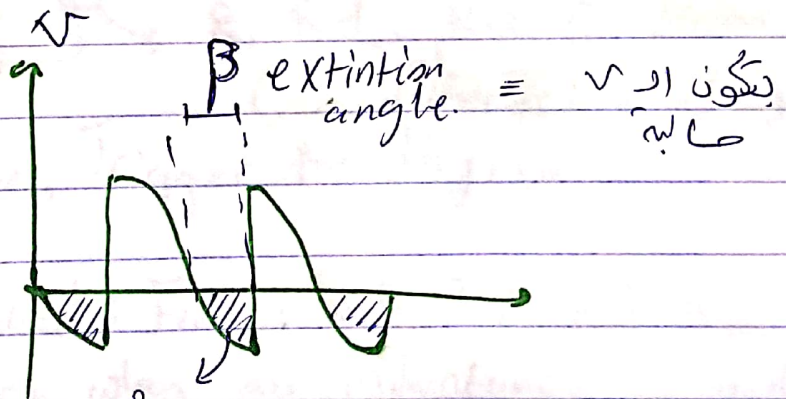 V
β extintion angle. ≡ بتكون الـ V
سالبة